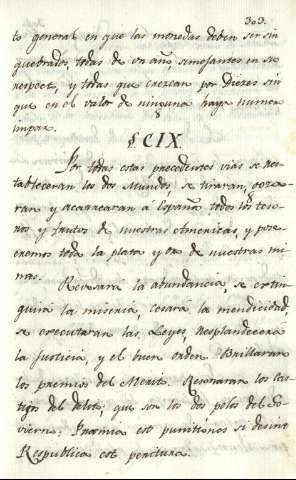 303.
to general en que las monedas deben ser sin
quebrados, todas de un año semejantes en su
respect, y todas que crezcan por Diezes sin
que en el valor de ninguna haya numero
impar.
§. CIX.
Por todas estas precedentes vias se res-
tableceran los dos Mundos, se tiraran, goza-
ran y acarrearan à España todos los teso-
ros y frutos de nuestras Americas, y pose-
eremos toda la plata y oro de nuestras mi-
nas.
Revosara la abundancia, se extin-
guirá la miseria, cesará la mendicidad,
se executaran las Leyes, resplandecera
la Justicia, y el buen orden. Brillaran
los premios del Merito. Resonaran los Cas-
tigos del delito, que son los dos polos del Go-
vierno. Praemia est punitiones si desint
Respublica est peritura.